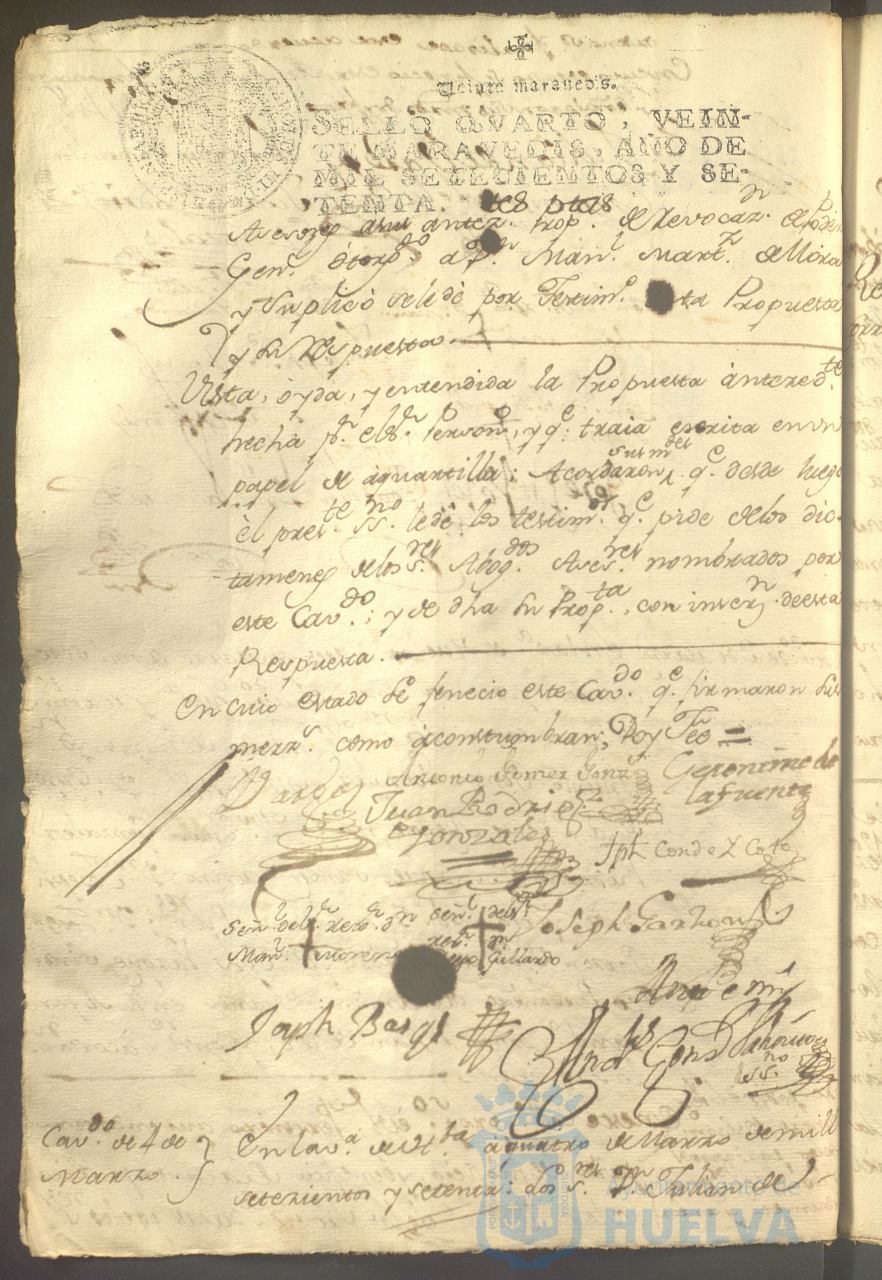 Veinte maravedis.
SELLO QVARTO, VEIN-
TE MARAVEDIS, AÑO DE
MIL SETECIENTOS Y SE-
TENTA.
antez. Prop. de revocaz.n de poder
Gen.l otorg.do a D.n Man.l Mart.z de Mora
y suplicó se le dé por Testim.o Propuesta
y su Respuesta.
Vista, oyda, y entendida la Propuesta anteced.te
hecha p.r el S.r Person.o, y q.e traia escrita en un
papel de aquartilla; Acordaron sus m.des q.e desde luego
el pres.te ss.no le dé los testim.os q.e pide de los dic-
tamenes de los S.res Abog.dos Ases.res nombrados por
este Cav.do; y de dha su Prop.ta, con inserz.n de esta
Respuesta.
En cuio estado se fenecio este Cav.do q.e firmaron sus
merz.s como acostumbran; Doy Fee =
Vargas Antonio Gomez Gonz.s Geronimo de
la fuente
Juan Rodrig.z
Gonzales
Jph Conde y Coto
Señ.l del S.r rexo.r D.n Señ.l del S.r
Man.l Moreno rex.r D.n Gillardo
Joseph Garzon
Ante mi
Joseph Bars
ss.no
Cav.do de 4 de
Marzo
En la v.a de a quatro de Marzo de mill
setezientos y setenta: los S.res D.n Julian de
Ayuntamiento de
HUELVA